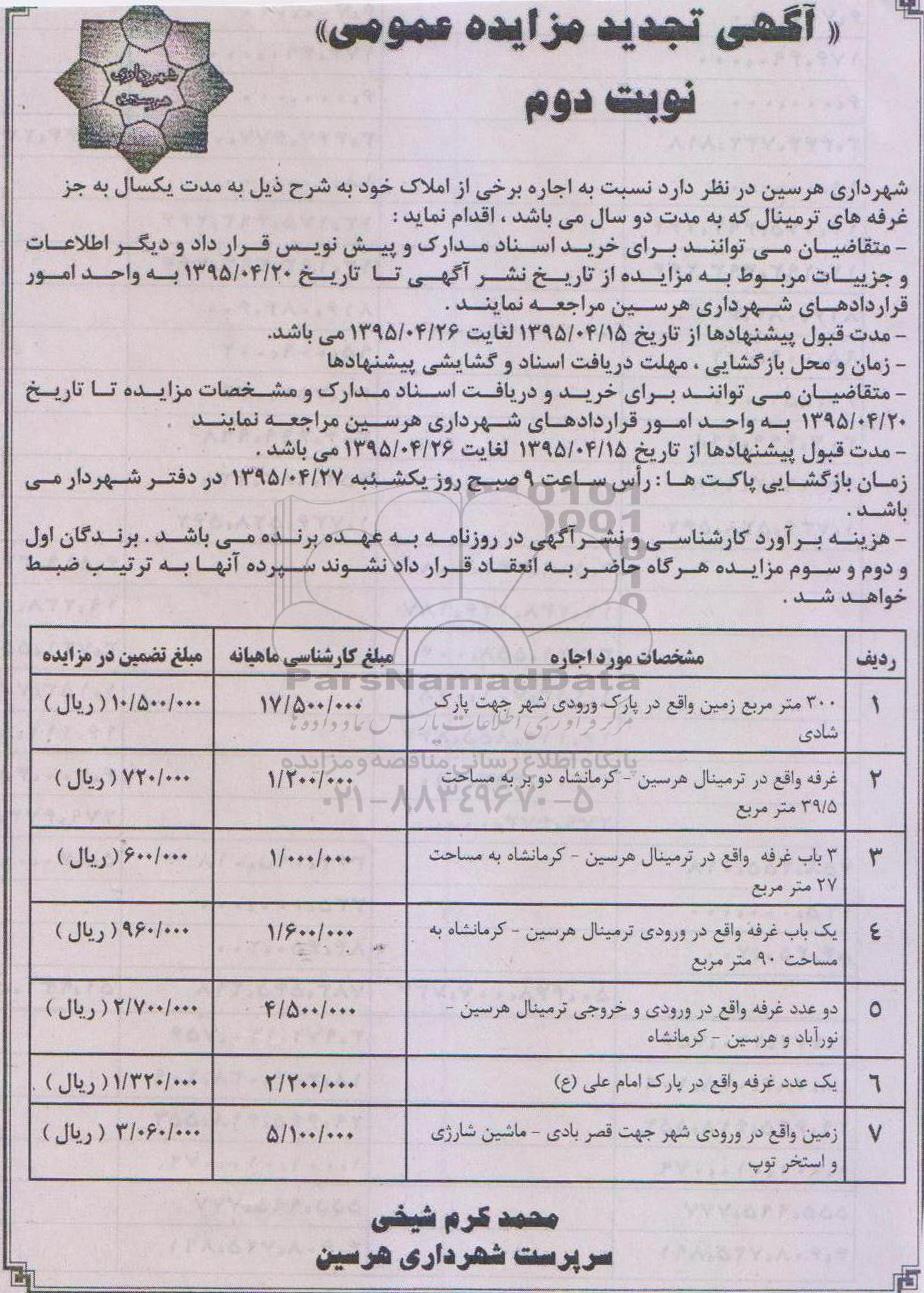 « آگهی تجدید مزایده عمومی»
نوبت دوم
شهرداری
هرسین
شهرداری هرسین در نظر دارد نسبت به اجاره برخی از املاک خود به شرح ذیل به مدت یکسال به جز
غرفه های ترمینال که به مدت دو سال می باشد ، اقدام نماید :
- متقاضیان می توانند برای خرید اسناد مدارک و پیش نویس قرار داد و دیگر اطلاعات
و جزییات مربوط به مزایده از تاریخ نشر آگهی تا تاریخ ۱۳۹۵/۰۴/۲۰ به واحد امور
قراردادهای شهرداری هرسین مراجعه نمایند .
- مدت قبول پیشنهادها از تاریخ ۱۳۹۵/۰۴/۱۵ لغایت ۱۳۹۵/۰۴/۲۶ می باشد.
- زمان و محل بازگشایی ، مهلت دریافت اسناد و گشایشی پیشنهادها
- متقاضیان می توانند برای خرید و دریافت اسناد مدارک و مشخصات مزایده تا تاریخ
۱۳۹۵/۰۴/۲۰ به واحد امور قراردادهای شهرداری هرسین مراجعه نمایند
- مدت قبول پیشنهادها از تاریخ ۱۳۹۵/۰۴/۱۵ لغایت ۱۳۹۵/۰۴/۲۶ می باشد .
زمان بازگشایی پاکت ها : رأس ساعت ۹ صبح روز یکشنبه ۱۳۹۵/۰۴/۲۷ در دفتر شهردار می
باشد .
- هزینه برآورد کارشناسی و نشر آگهی در روزنامه به عهده برنده می باشد . برندگان اول
و دوم و سوم مزایده هرگاه حاضر به انعقاد قرار داد نشوند سپرده آنها به ترتیب ضبط
خواهد شد .
ردیف مشخصات مورد اجاره مبلغ کارشناسی ماهیانه مبلغ تضمین در مزایده
۱ ۳۰۰ متر مربع زمین واقع در پارک ورودی شهر جهت پارک ۱۷/۵۰۰/۰۰۰ ۱۰/۵۰۰/۰۰۰ ( ریال )
شادی
۲ غرفه واقع در ترمینال هرسین - کرمانشاه دو بر به مساحت ۱/۲۰۰/۰۰۰ ۷۲۰/۰۰۰ ( ریال )
۳۹/۵ متر مربع
۳ ۳ باب غرفه واقع در ترمینال هرسین - کرمانشاه به مساحت ۱/۰۰۰/۰۰۰ ۶۰۰/۰۰۰ ( ریال )
۲۷ متر مربع
۴ یک باب غرفه واقع در ورودی ترمینال هرسین - کرمانشاه به ۱/۶۰۰/۰۰۰ ۹۶۰/۰۰۰ ( ریال )
مساحت ۹۰ متر مربع
۵ دو عدد غرفه واقع در ورودی و خروجی ترمینال هرسین - ۴/۵۰۰/۰۰۰ ۲/۷۰۰/۰۰۰ ( ریال )
نورآباد و هرسین - کرمانشاه
۶ یک عدد غرفه واقع در پارک امام علی (ع) ۲/۲۰۰/۰۰۰ ۱/۳۲۰/۰۰۰ ( ریال )
۷ زمین واقع در ورودی شهر جهت قصر بادی - ماشین شارژی ۵/۱۰۰/۰۰۰ ۳/۰۶۰/۰۰۰ ( ریال )
و استخر توپ
ParsNamadData
مرکز فرآوری اطلاعات پارس نماد داده ها
پایگاه اطلاع رسانی مناقصه و مزایده
۰۲۱-۸۸۳۴۹۶۷۰-۵
محمد کرم شیخی
سرپرست شهرداری هرسین